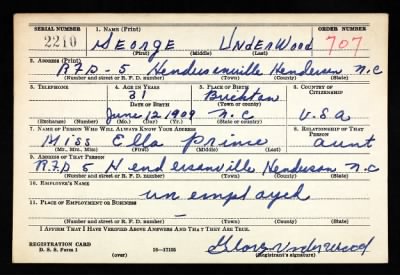 SERIAL NUMBER 1. NAME (Print) ORDER NUMBER
2210 GEORGE UNDERWOOD 707
(First) (Middle) (Last)
2. ADDRESS (Print)
RFD-5 Hendersonville Henderson N.C
(Number and street or R. F. D. number) (Town) (County) (State)
3. TELEPHONE 4. AGE IN YEARS 5. PLACE OF BIRTH 6. COUNTRY OF CITIZENSHIP
31
DATE OF BIRTH (Town or county)
June 12 1909 N.C U.S.A
(Exchange) (No.) (Mo.) (Day) (Yr.) (State or country)
7. NAME OF PERSON WHO WILL ALWAYS KNOW YOUR ADDRESS 8. RELATIONSHIP OF THAT PERSON
Miss Ella Prince aunt
(Mr., Mrs., Miss) (First) (Middle) (Last)
9. ADDRESS OF THAT PERSON
RFD 5 Hendersonville Henderson N.C
(Number and street or R. F. D. number) (Town) (County) (State)
10. EMPLOYER'S NAME
unemployed
11. PLACE OF EMPLOYMENT OR BUSINESS
–
(Number and street or R. F. D. number) (Town) (County) (State)
I AFFIRM THAT I HAVE VERIFIED ABOVE ANSWERS AND THAT THEY ARE TRUE.
REGISTRATION CARD George Underwood
D. S. S. Form 1 (over) 16—17105 (Registrant's signature)